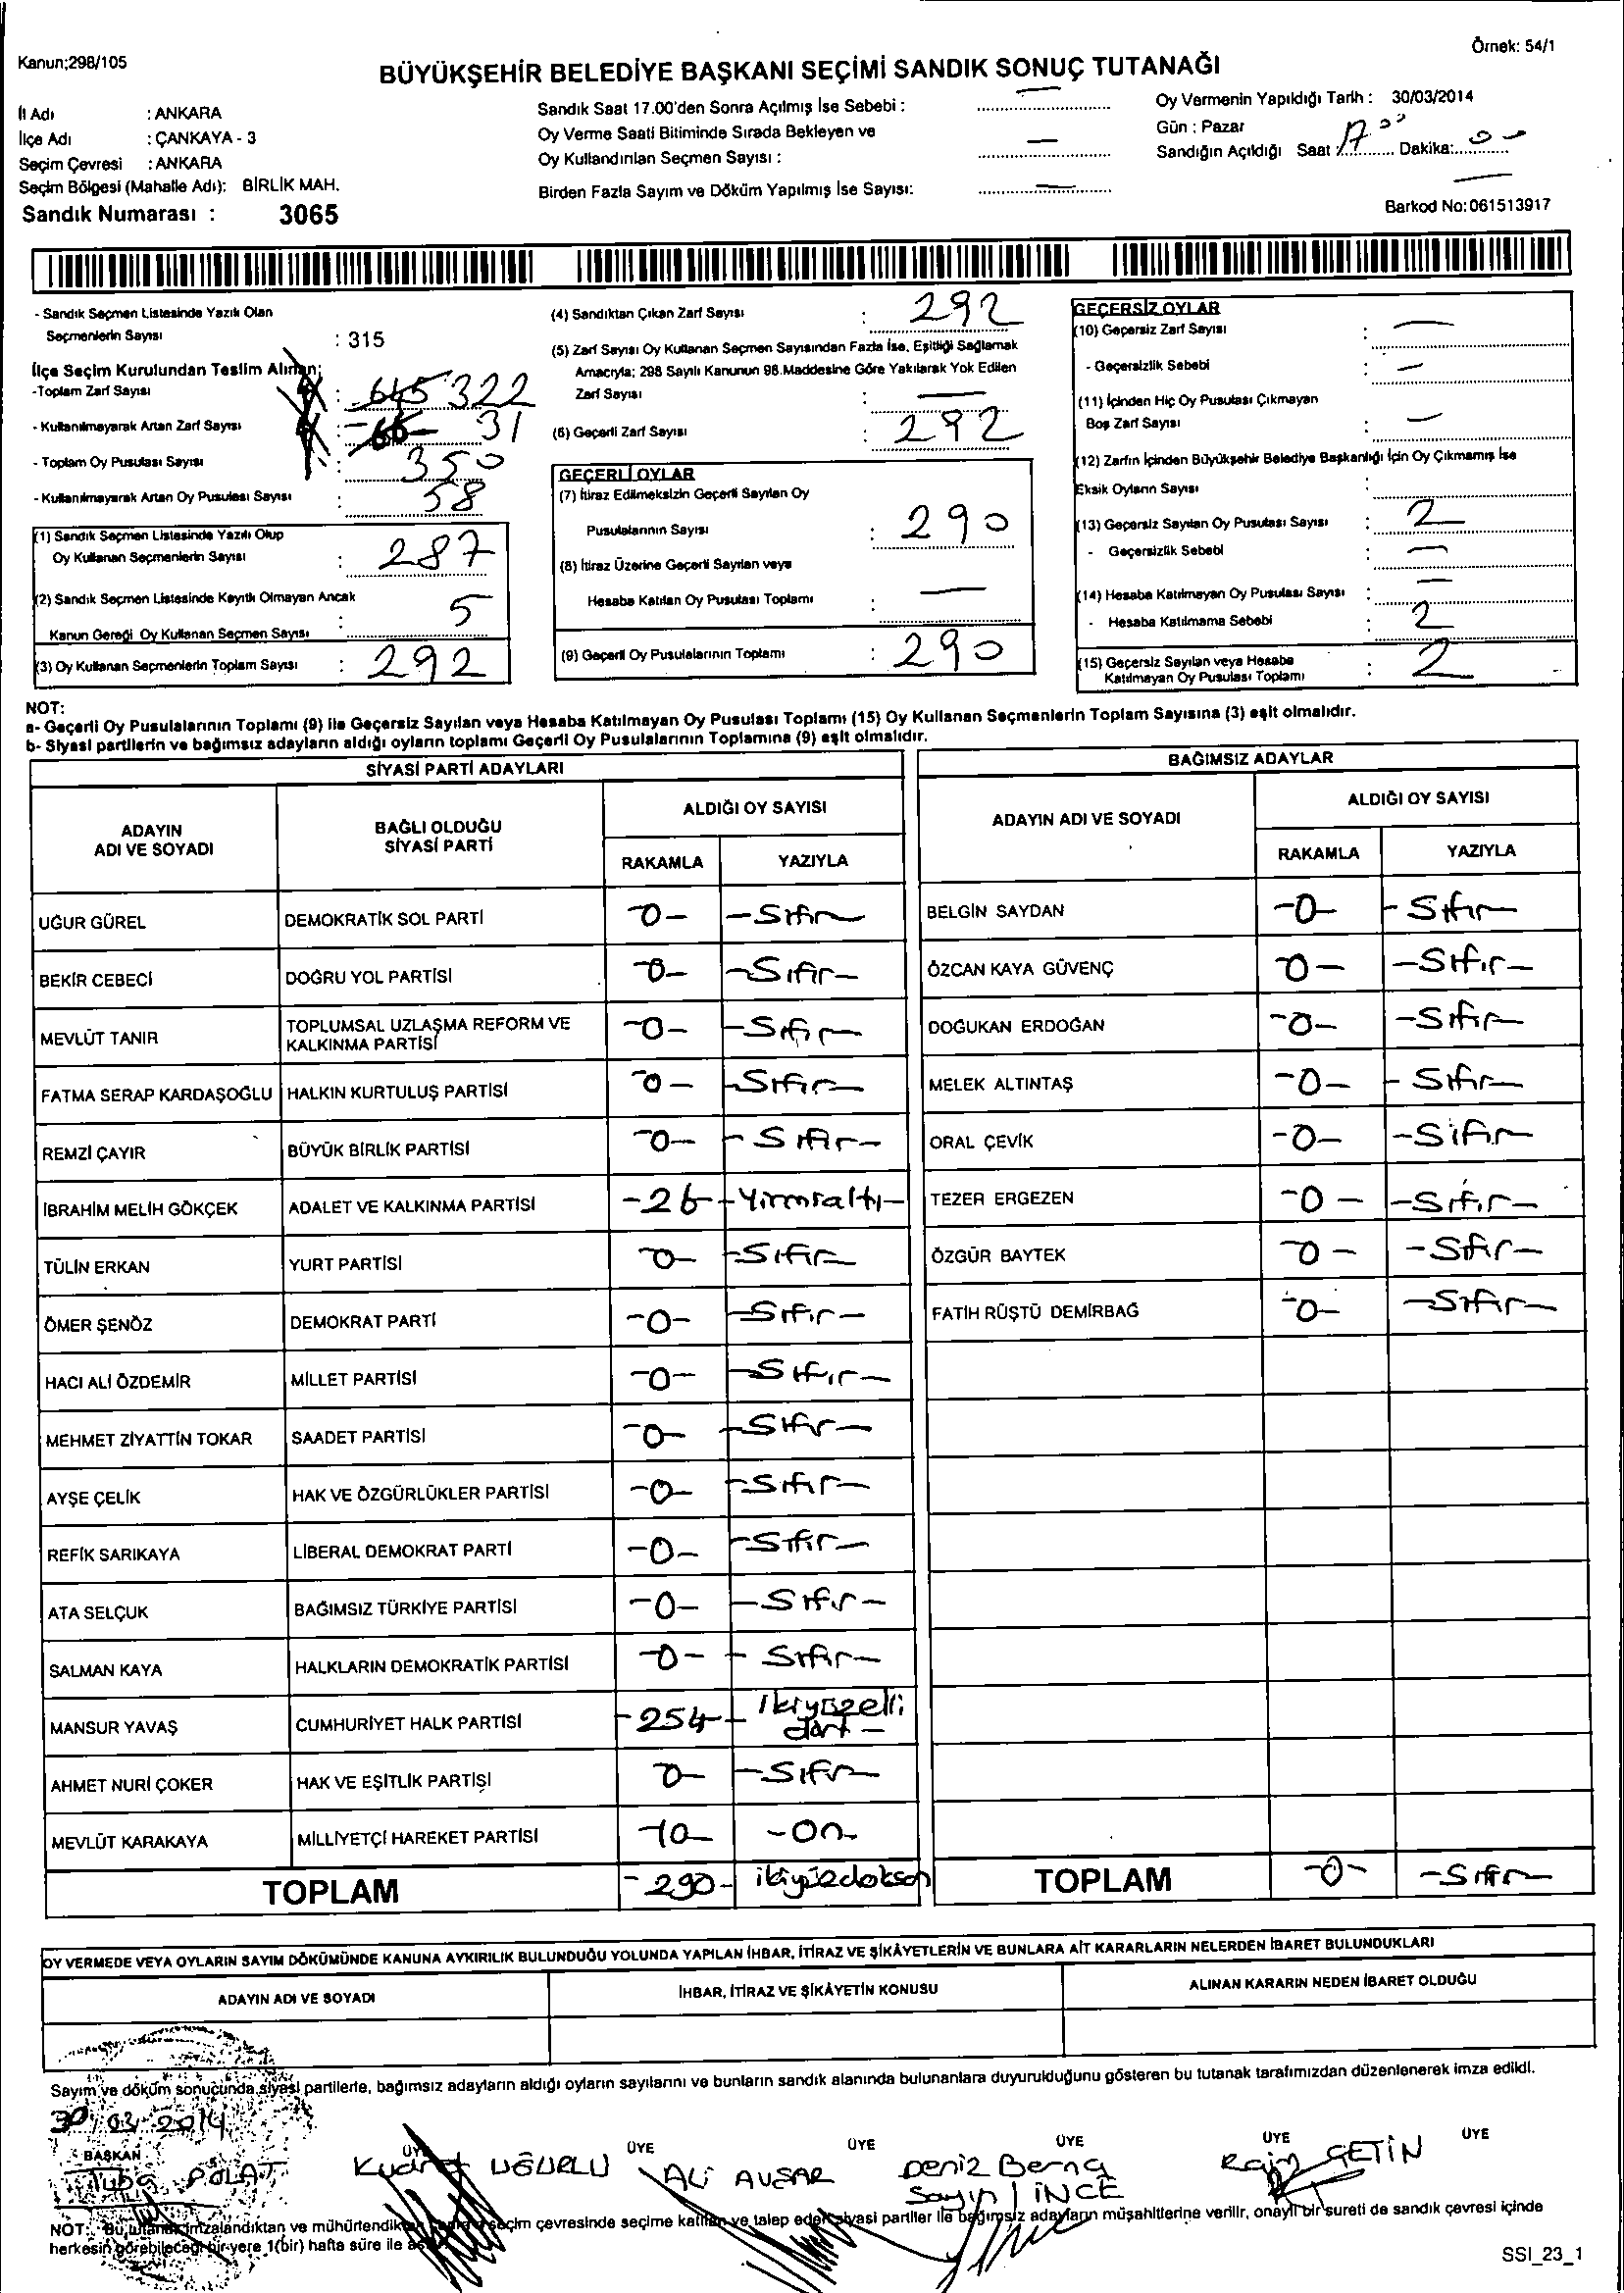 Örnek: 54/1
Kanun;298/105
BÜYÜKŞEHİR BELEDİYE BAŞKANI SEÇİMİ SANDIK SONUÇ TUTANAĞI
İl Adı : ANKARA
İlçe Adı : ÇANKAYA - 3
Seçim Çevresi : ANKARA
Seçim Bölgesi (Mahalle Adı): BİRLİK MAH.
Sandık Numarası : 3065
Sandık Saat 17.00'den Sonra Açılmış İse Sebebi : —
Oy Verme Saati Bitiminde Sırada Bekleyen ve
Oy Kullandırılan Seçmen Sayısı : —
Birden Fazla Sayım ve Döküm Yapılmış İse Sayısı: —
Oy Vermenin Yapıldığı Tarih : 30/03/2014
Gün : Pazar
Sandığın Açıldığı Saat 17.00 Dakika:
Barkod No:061513917
- Sandık Seçmen Listesinde Yazılı Olan
Seçmenlerin Sayısı : 315
İlçe Seçim Kurulundan Teslim Alınan;
-Toplam Zarf Sayısı : 645 322
- Kullanılmayarak Artan Zarf Sayısı : 31
- Toplam Oy Pusulası Sayısı : 350
- Kullanılmayarak Artan Oy Pusulası Sayısı : 58
(1) Sandık Seçmen Listesinde Yazılı Olup
Oy Kullanan Seçmenlerin Sayısı : 287
(2) Sandık Seçmen Listesinde Kayıtlı Olmayan Ancak
Kanun Gereği Oy Kullanan Seçmen Sayısı : 5
(3) Oy Kullanan Seçmenlerin Toplam Sayısı : 292
(4) Sandıktan Çıkan Zarf Sayısı : 292
(5) Zarf Sayısı Oy Kullanan Seçmen Sayısından Fazla İse, Eşitliği Sağlamak
Amacıyla; 298 Sayılı Kanunun 98.Maddesine Göre Yakılarak Yok Edilen
Zarf Sayısı : —
(6) Geçerli Zarf Sayısı : 292
GEÇERLİ OYLAR
(7) İtiraz Edilmeksizin Geçerli Sayılan Oy
Pusulalarının Sayısı : 290
(8) İtiraz Üzerine Geçerli Sayılan veya
Hesaba Katılan Oy Pusulası Toplamı : —
(9) Geçerli Oy Pusulalarının Toplamı : 290
GEÇERSİZ OYLAR
(10) Geçersiz Zarf Sayısı : —
- Geçersizlik Sebebi : —
(11) İçinden Hiç Oy Pusulası Çıkmayan
Boş Zarf Sayısı : —
(12) Zarfın İçinden Büyükşehir Belediye Başkanlığı İçin Oy Çıkmamış İse
Eksik Oyların Sayısı :
(13) Geçersiz Sayılan Oy Pusulası Sayısı : 2
- Geçersizlik Sebebi : —
(14) Hesaba Katılmayan Oy Pusulası Sayısı : —
- Hesaba Katılmama Sebebi : 2
(15) Geçersiz Sayılan veya Hesaba
Katılmayan Oy Pusulası Toplamı : 2
NOT:
a- Geçerli Oy Pusulalarının Toplamı (9) ile Geçersiz Sayılan veya Hesaba Katılmayan Oy Pusulası Toplamı (15) Oy Kullanan Seçmenlerin Toplam Sayısına (3) eşit olmalıdır.
b- Siyasi partilerin ve bağımsız adayların aldığı oyların toplamı Geçerli Oy Pusulalarının Toplamına (9) eşit olmalıdır.
SİYASİ PARTİ ADAYLARI
ADAYIN
ADI VE SOYADI
BAĞLI OLDUĞU
SİYASİ PARTİ
ALDIĞI OY SAYISI
RAKAMLA YAZIYLA
UĞUR GÜREL DEMOKRATİK SOL PARTİ -0- -Sıfır-
BEKİR CEBECİ DOĞRU YOL PARTİSİ -0- -Sıfır-
MEVLÜT TANIR TOPLUMSAL UZLAŞMA REFORM VE
KALKINMA PARTİSİ -0- -Sıfır-
FATMA SERAP KARDAŞOĞLU HALKIN KURTULUŞ PARTİSİ -0- -Sıfır-
REMZİ ÇAYIR BÜYÜK BİRLİK PARTİSİ -0- -Sıfır-
İBRAHİM MELİH GÖKÇEK ADALET VE KALKINMA PARTİSİ -26- -Yirmialtı-
TÜLİN ERKAN YURT PARTİSİ -0- -Sıfır-
ÖMER ŞENÖZ DEMOKRAT PARTİ -0- -Sıfır-
HACI ALİ ÖZDEMİR MİLLET PARTİSİ -0- -Sıfır-
MEHMET ZİYATTİN TOKAR SAADET PARTİSİ -0- -Sıfır-
AYŞE ÇELİK HAK VE ÖZGÜRLÜKLER PARTİSİ -0- -Sıfır-
REFİK SARIKAYA LİBERAL DEMOKRAT PARTİ -0- -Sıfır-
ATA SELÇUK BAĞIMSIZ TÜRKİYE PARTİSİ -0- -Sıfır-
SALMAN KAYA HALKLARIN DEMOKRATİK PARTİSİ -0- - Sıfır-
MANSUR YAVAŞ CUMHURİYET HALK PARTİSİ -254- ikiyüzelli
dört -
AHMET NURİ ÇOKER HAK VE EŞİTLİK PARTİSİ 0- -Sıfır-
MEVLÜT KARAKAYA MİLLİYETÇİ HAREKET PARTİSİ -10- -On-
TOPLAM -290- ikiyüzdoksan
BAĞIMSIZ ADAYLAR
ADAYIN ADI VE SOYADI
ALDIĞI OY SAYISI
RAKAMLA YAZIYLA
BELGİN SAYDAN -0- -Sıfır-
ÖZCAN KAYA GÜVENÇ -0- -Sıfır-
DOĞUKAN ERDOĞAN -0- -Sıfır-
MELEK ALTINTAŞ -0- -Sıfır-
ORAL ÇEVİK -0- -Sıfır-
TEZER ERGEZEN -0- -Sıfır-
ÖZGÜR BAYTEK -0- -Sıfır-
FATİH RÜŞTÜ DEMİRBAĞ -0- -Sıfır-
TOPLAM -0- -Sıfır-
OY VERMEDE VEYA OYLARIN SAYIM DÖKÜMÜNDE KANUNA AYKIRILIK BULUNDUĞU YOLUNDA YAPILAN İHBAR, İTİRAZ VE ŞİKÂYETLERİN VE BUNLARA AİT KARARLARIN NELERDEN İBARET BULUNDUKLARI
ADAYIN ADI VE SOYADI İHBAR, İTİRAZ VE ŞİKÂYETİN KONUSU ALINAN KARARIN NEDEN İBARET OLDUĞU
Sayım ve döküm sonucunda siyasi partilerle, bağımsız adayların aldığı oyların sayılarını ve bunların sandık alanında bulunanlara duyurulduğunu gösteren bu tutanak tarafımızdan düzenlenerek imza edildi.
30/03/2014
BAŞKAN ÜYE ÜYE ÜYE ÜYE ÜYE ÜYE
Tuba POLAT
UĞURLU
ALİ AVŞAR
Deniz Berna
Sayın İNCE
ÇETİN
NOT: Bu tutanak imzalandıktan ve mühürlendikten seçim çevresinde seçime katılan ve talep eden siyasi partiler ile bağımsız adayların müşahitlerine verilir, onaylı bir sureti de sandık çevresi içinde
herkesin görebileceği bir yere 1(bir) hafta süre ile
SSI_23_1